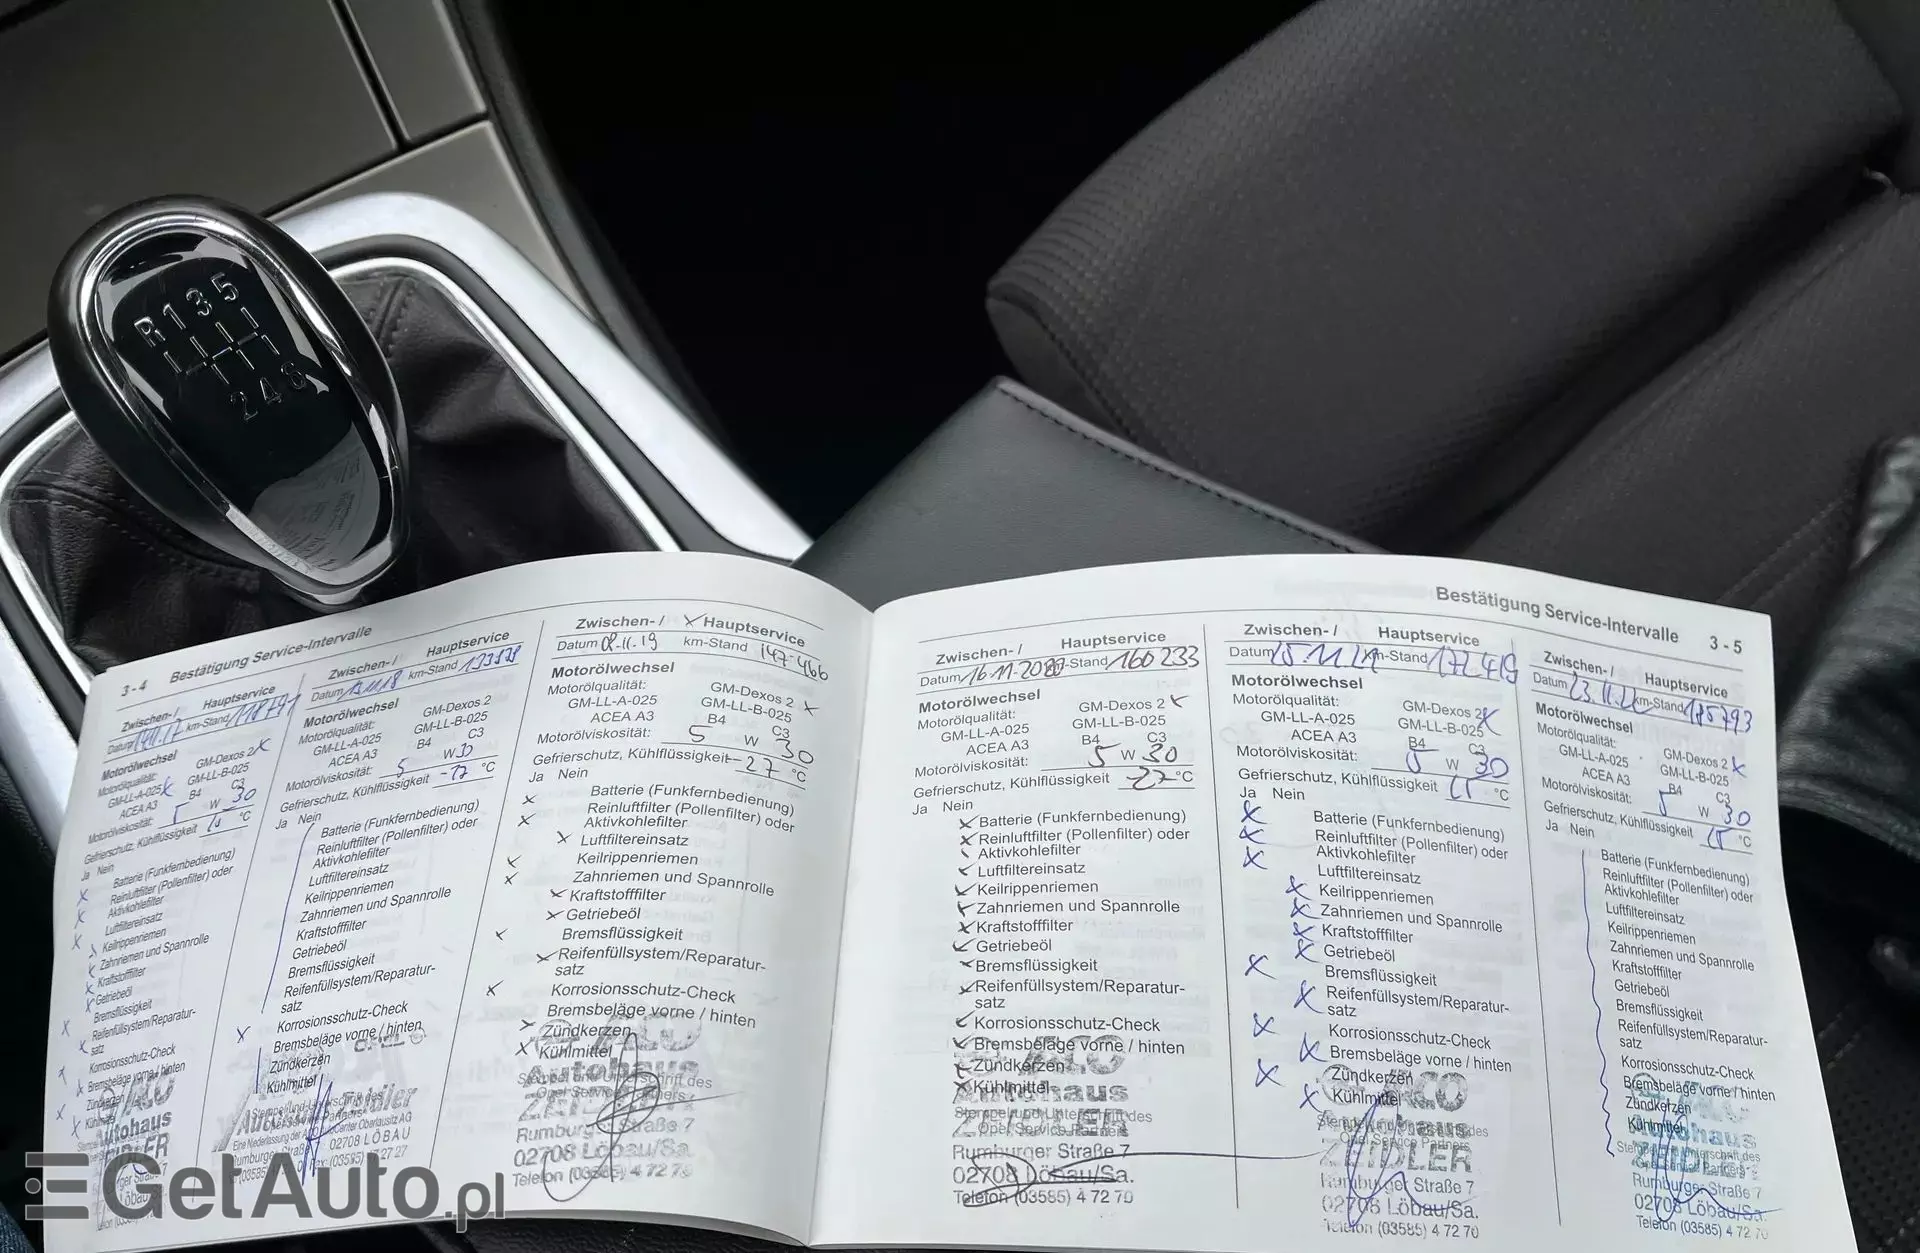 R 1 3 5
2 4 6
3 - 4 Bestätigung Service-Intervalle
Zwischen- / Hauptservice
Datum km-Stand 118791
Motorölwechsel
Motorölqualität: GM-Dexos 2 x
GM-LL-A-025 x GM-LL-B-025
ACEA A3 B4 C3
Motorölviskosität: 5 W 30
Gefrierschutz, Kühlflüssigkeit °C
Ja Nein
Batterie (Funkfernbedienung)
Reinluftfilter (Pollenfilter) oder
Aktivkohlefilter
Luftfiltereinsatz
Keilrippenriemen
Zahnriemen und Spannrolle
Kraftstofffilter
Getriebeöl
Bremsflüssigkeit
Reifenfüllsystem/Reparatur-
satz
Korrosionsschutz-Check
Bremsbeläge vorne / hinten
Zündkerzen
Kühlmittel
Autohaus
ZEIDLER
Zwischen- / Hauptservice
Datum 13.11.18 km-Stand
Motorölwechsel
Motorölqualität: GM-Dexos 2
GM-LL-A-025 GM-LL-B-025
ACEA A3 B4 C3
Motorölviskosität: 5 W 30
Gefrierschutz, Kühlflüssigkeit °C
Ja Nein
Batterie (Funkfernbedienung)
Reinluftfilter (Pollenfilter) oder
Aktivkohlefilter
Luftfiltereinsatz
Keilrippenriemen
Zahnriemen und Spannrolle
Kraftstofffilter
Getriebeöl
Bremsflüssigkeit
Reifenfüllsystem/Reparatur-
satz
Korrosionsschutz-Check
Bremsbeläge vorne / hinten
Zündkerzen
Kühlmittel
02708 LÖBAU
Zwischen- / x Hauptservice
Datum 08.11.19 km-Stand 147466
Motorölwechsel
Motorölqualität: GM-Dexos 2 x
GM-LL-A-025 GM-LL-B-025
ACEA A3 B4 C3
Motorölviskosität: 5 W 30
Gefrierschutz, Kühlflüssigkeit -27 °C
Ja Nein
Batterie (Funkfernbedienung)
Reinluftfilter (Pollenfilter) oder
Aktivkohlefilter
Luftfiltereinsatz
Keilrippenriemen
Zahnriemen und Spannrolle
Kraftstofffilter
Getriebeöl
Bremsflüssigkeit
Reifenfüllsystem/Reparatur-
satz
Korrosionsschutz-Check
Bremsbeläge vorne / hinten
Zündkerzen
Kühlmittel
Autohaus
Stempel und Unterschrift des
Opel Service Partners
ZEIDLER
Rumburger Straße 7
02708 Löbau/Sa.
Telefon (03585) 4 72 70
Bestätigung Service-Intervalle 3 - 5
Zwischen- / Hauptservice
Datum 16.11.2020 km-Stand 160233
Motorölwechsel
Motorölqualität: GM-Dexos 2 x
GM-LL-A-025 GM-LL-B-025
ACEA A3 B4 C3
Motorölviskosität: 5 W 30
Gefrierschutz, Kühlflüssigkeit -27 °C
Ja Nein
Batterie (Funkfernbedienung)
Reinluftfilter (Pollenfilter) oder
Aktivkohlefilter
Luftfiltereinsatz
Keilrippenriemen
Zahnriemen und Spannrolle
Kraftstofffilter
Getriebeöl
Bremsflüssigkeit
Reifenfüllsystem/Reparatur-
satz
Korrosionsschutz-Check
Bremsbeläge vorne / hinten
Zündkerzen
Kühlmittel
Autohaus
Stempel und Unterschrift des
Opel Service Partners
ZEIDLER
Rumburger Straße 7
02708 Löbau/Sa.
Telefon (03585) 4 72 70
Zwischen- / Hauptservice
Datum 15.11.21 km-Stand 172419
Motorölwechsel
Motorölqualität: GM-Dexos 2 x
GM-LL-A-025 GM-LL-B-025
ACEA A3 B4 C3
Motorölviskosität: 5 W 30
Gefrierschutz, Kühlflüssigkeit °C
Ja Nein
Batterie (Funkfernbedienung)
Reinluftfilter (Pollenfilter) oder
Aktivkohlefilter
Luftfiltereinsatz
Keilrippenriemen
Zahnriemen und Spannrolle
Kraftstofffilter
Getriebeöl
Bremsflüssigkeit
Reifenfüllsystem/Reparatur-
satz
Korrosionsschutz-Check
Bremsbeläge vorne / hinten
Zündkerzen
Kühlmittel
Autohaus
Opel Service Partners
ZEIDLER
Rumburger Straße 7
02708 Löbau/Sa.
Telefon (03585) 4 72 70
Zwischen- / Hauptservice
Datum km-Stand 185793
Motorölwechsel
Motorölqualität: GM-Dexos 2 x
GM-LL-A-025 GM-LL-B-025
ACEA A3 B4 C3
Motorölviskosität: 5 W 30
Gefrierschutz, Kühlflüssigkeit °C
Ja Nein
Batterie (Funkfernbedienung)
Reinluftfilter (Pollenfilter) oder
Aktivkohlefilter
Luftfiltereinsatz
Keilrippenriemen
Zahnriemen und Spannrolle
Kraftstofffilter
Getriebeöl
Bremsflüssigkeit
Reifenfüllsystem/Reparatur-
satz
Korrosionsschutz-Check
Bremsbeläge vorne / hinten
Zündkerzen
Kühlmittel
Autohaus
ZEIDLER
Rumburger Straße 7
02708 Löbau/Sa.
Telefon (03585) 4 72 70
GetAuto.pl